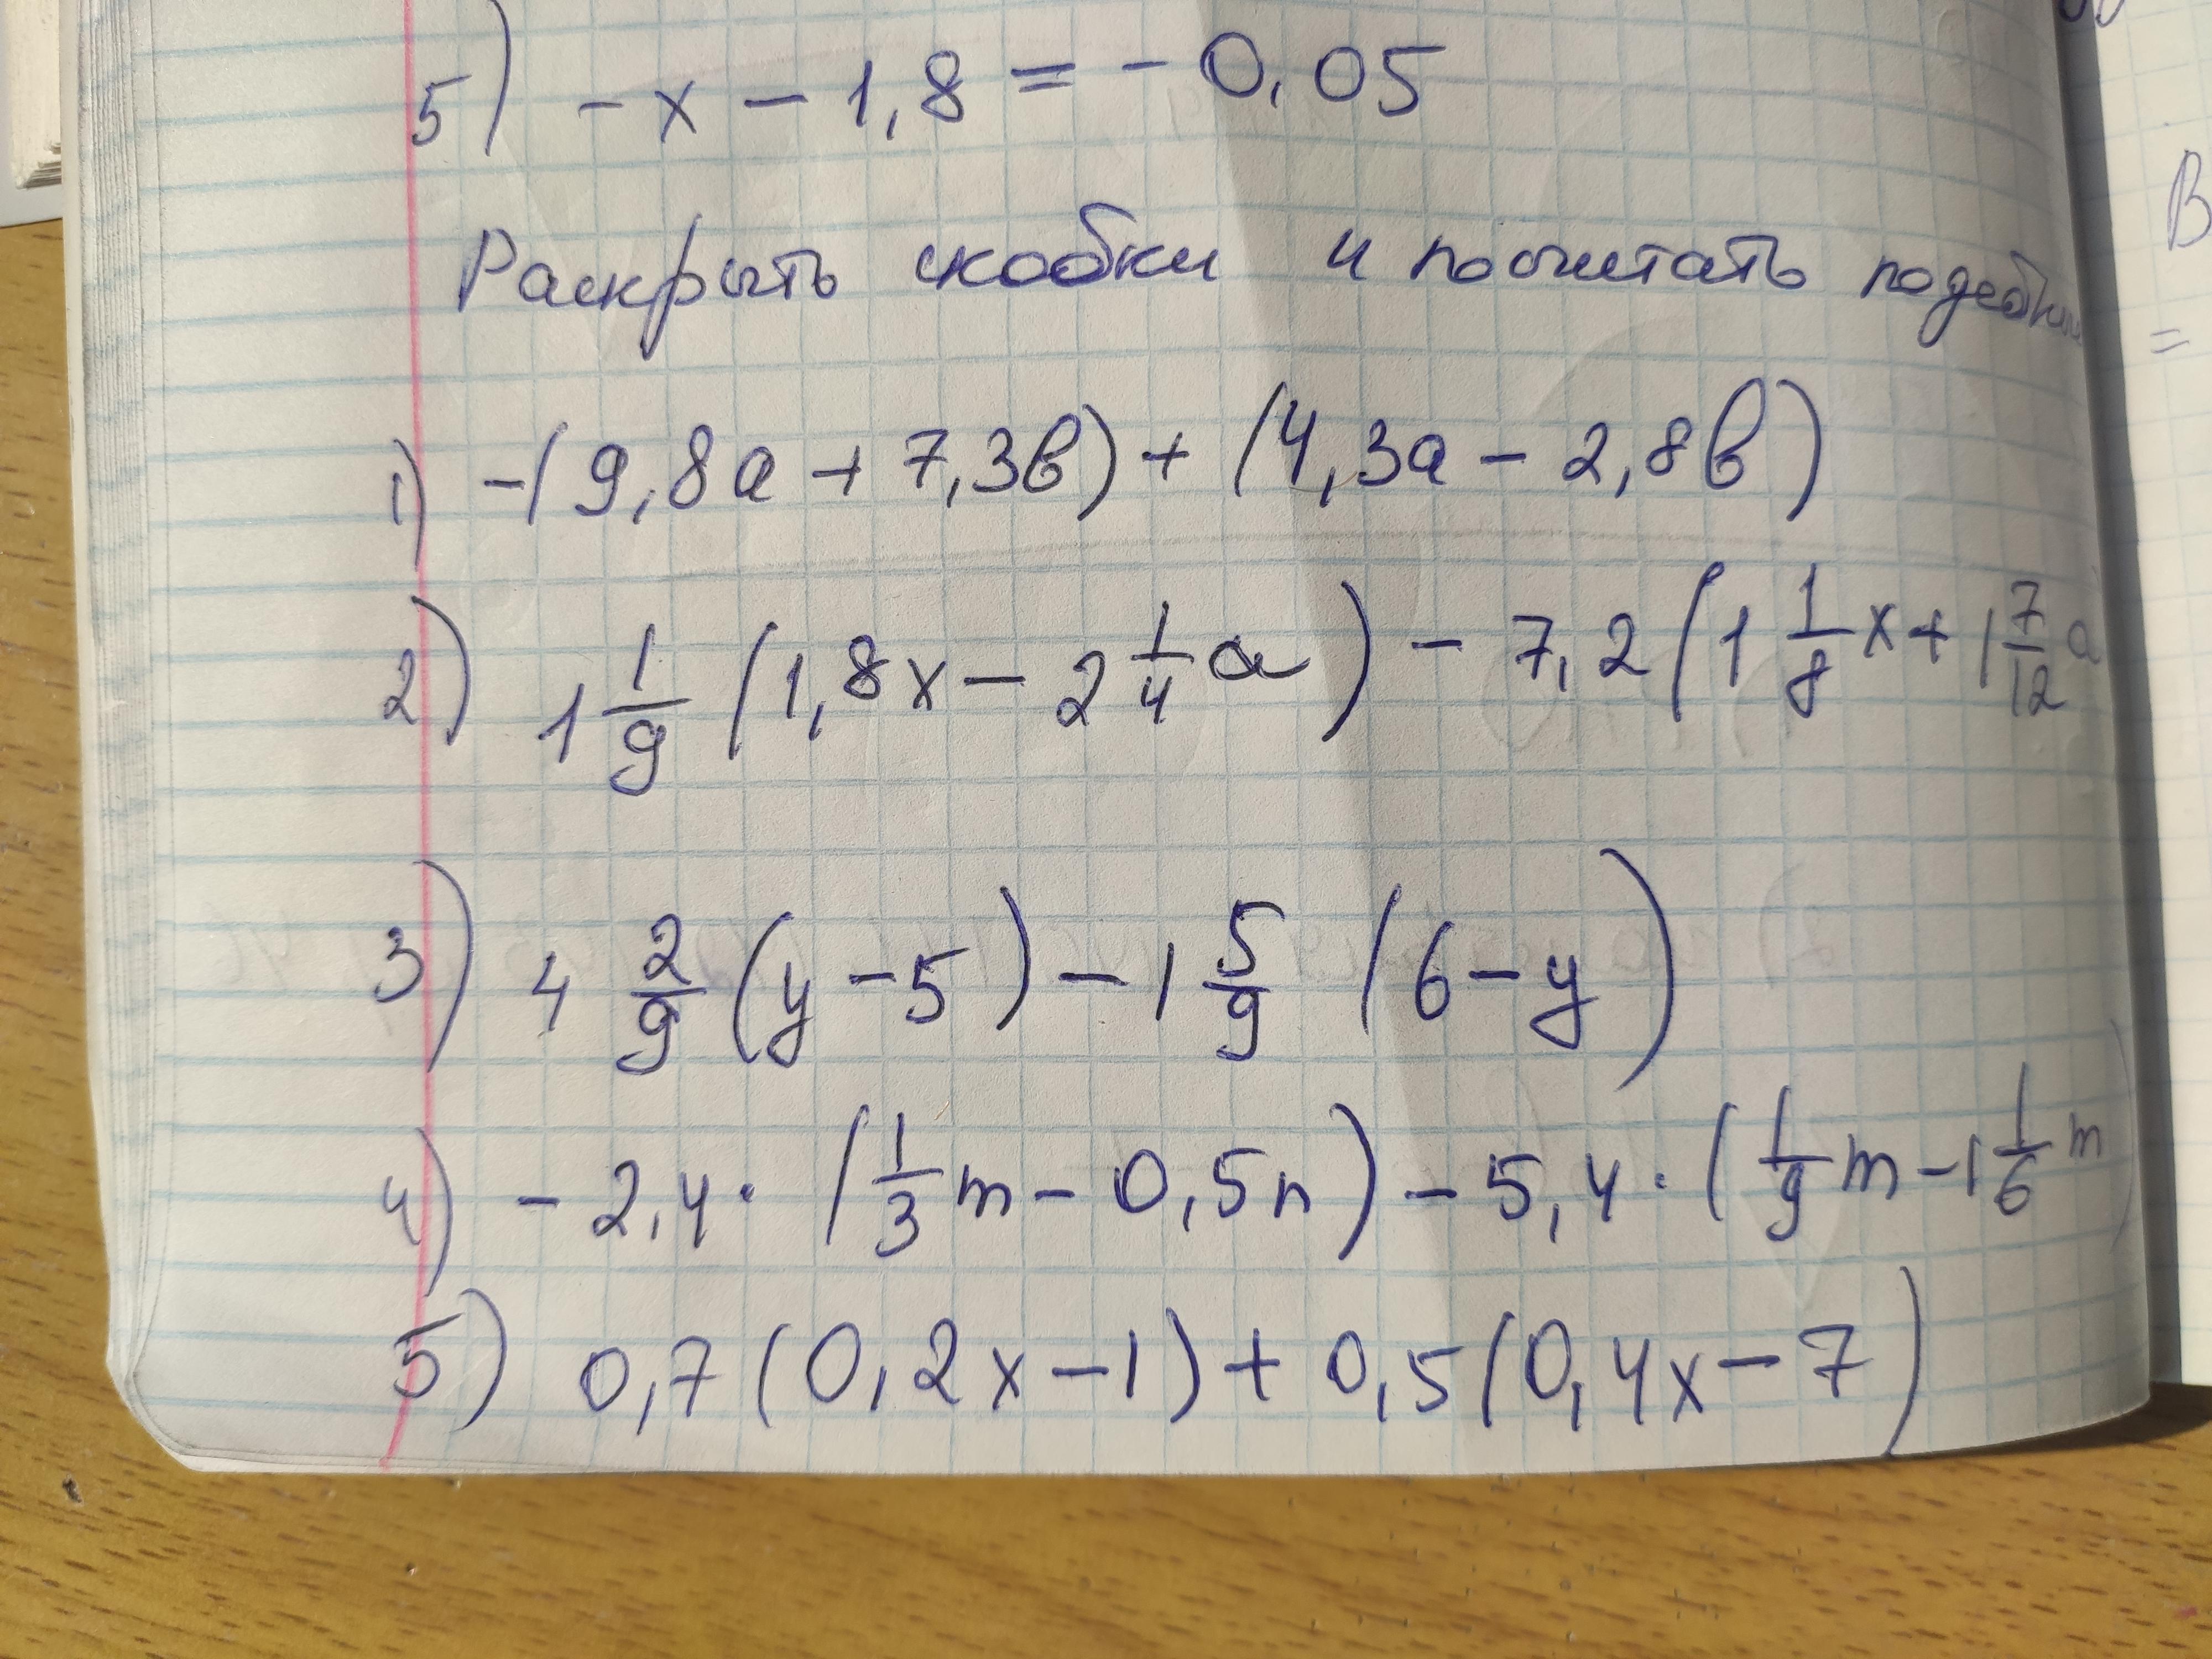 5) - x - 1,8 = - 0,05
Раскрыть скобки и посчитать подобные
1) -(9,8a + 7,3в) + (4,3a - 2,8в)
2) 1 1/9 (1,8x - 2 1/4 a) - 7,2 (1 1/8 x + 1 7/12 a
3) 4 2/9 (y - 5) - 1 5/9 (6 - y)
4) - 2,4 · (1/3 m - 0,5n) - 5,4 · (1/9 m - 1 1/6 m)
5) 0,7 (0,2x - 1) + 0,5 (0,4x - 7)
В
=